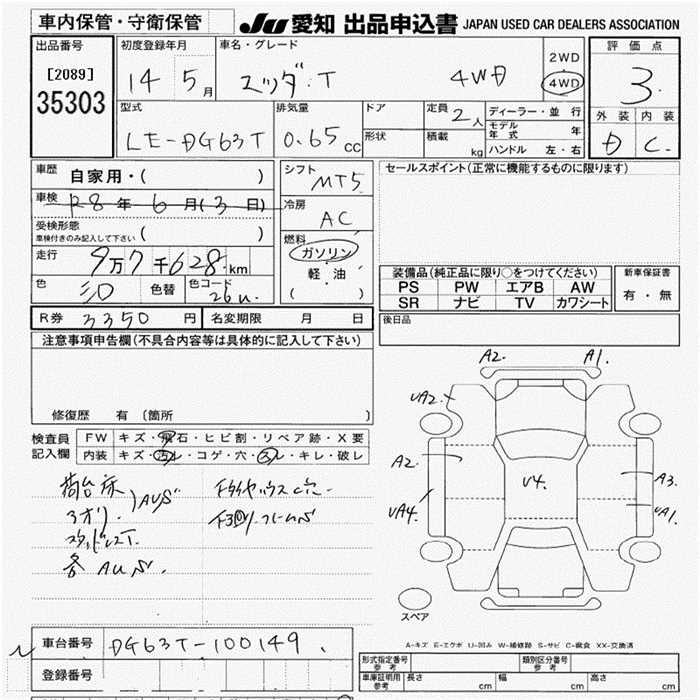 車内保管・守衛保管
JU 愛知 出品申込書 JAPAN USED CAR DEALERS ASSOCIATION
出品番号
[2089]
35303
初度登録年月
14 5月
車名・グレード
4WD
2WD
4WD
評価点
3
外装 内装
D C
型式
LE-DG63T
排気量
0.65 cc
ドア
形状
定員 2人
積載 kg
ディーラー・並行
モデル年式 年
ハンドル 左・右
車歴 自家用・( )
車検 R8年6月(3日)
受検形態
車検付きのみ記入して下さい ( )
走行 9万7千628km
色 シロ 色替 色コード 26U
シフト MT5
冷房 AC
燃料
ガソリン
軽・油
( )
セールスポイント(正常に機能するものに限ります)
装備品(純正品に限り○をつけてください)
PS PW エアB AW
SR ナビ TV カワシート
新車保証書
有・無
R券 3350円 名変期限 月 日
後日品
注意事項申告欄(不具合内容等は具体的に記入して下さい)
修復歴 有 〔箇所 〕
検査員記入欄
FW キズ・飛石・ヒビ割・リペア跡・X要
内装 キズ・汚レ・コゲ・穴・スレ・キレ・破レ
荷台床
各AUS.
A2. A1.
UA2.
A2.
UA4.
U4.
A3.
UA1.
スペア
A-キズ E-エクボ U-凹み W-補修跡 S-サビ C-腐食 XX-交換済
車台番号 DG63T-100149.
登録番号
形式指定番号 参考
類別区分番号 参考
車庫証明用 参考 長さ cm 幅 cm 高さ cm